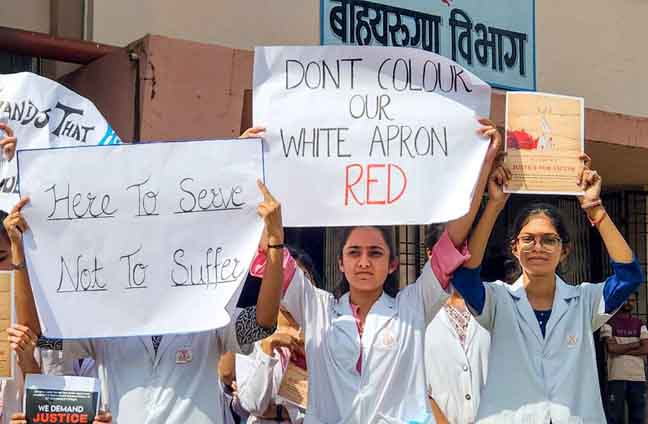 बाह्यरुग्ण विभाग
ANDS THAT
DONT COLOUR
OUR
WHITE APRON
RED
HERE TO SERVE
NOT TO SUFFER
JUSTICE FOR VICTIM
WE DEMAND
JUSTICE